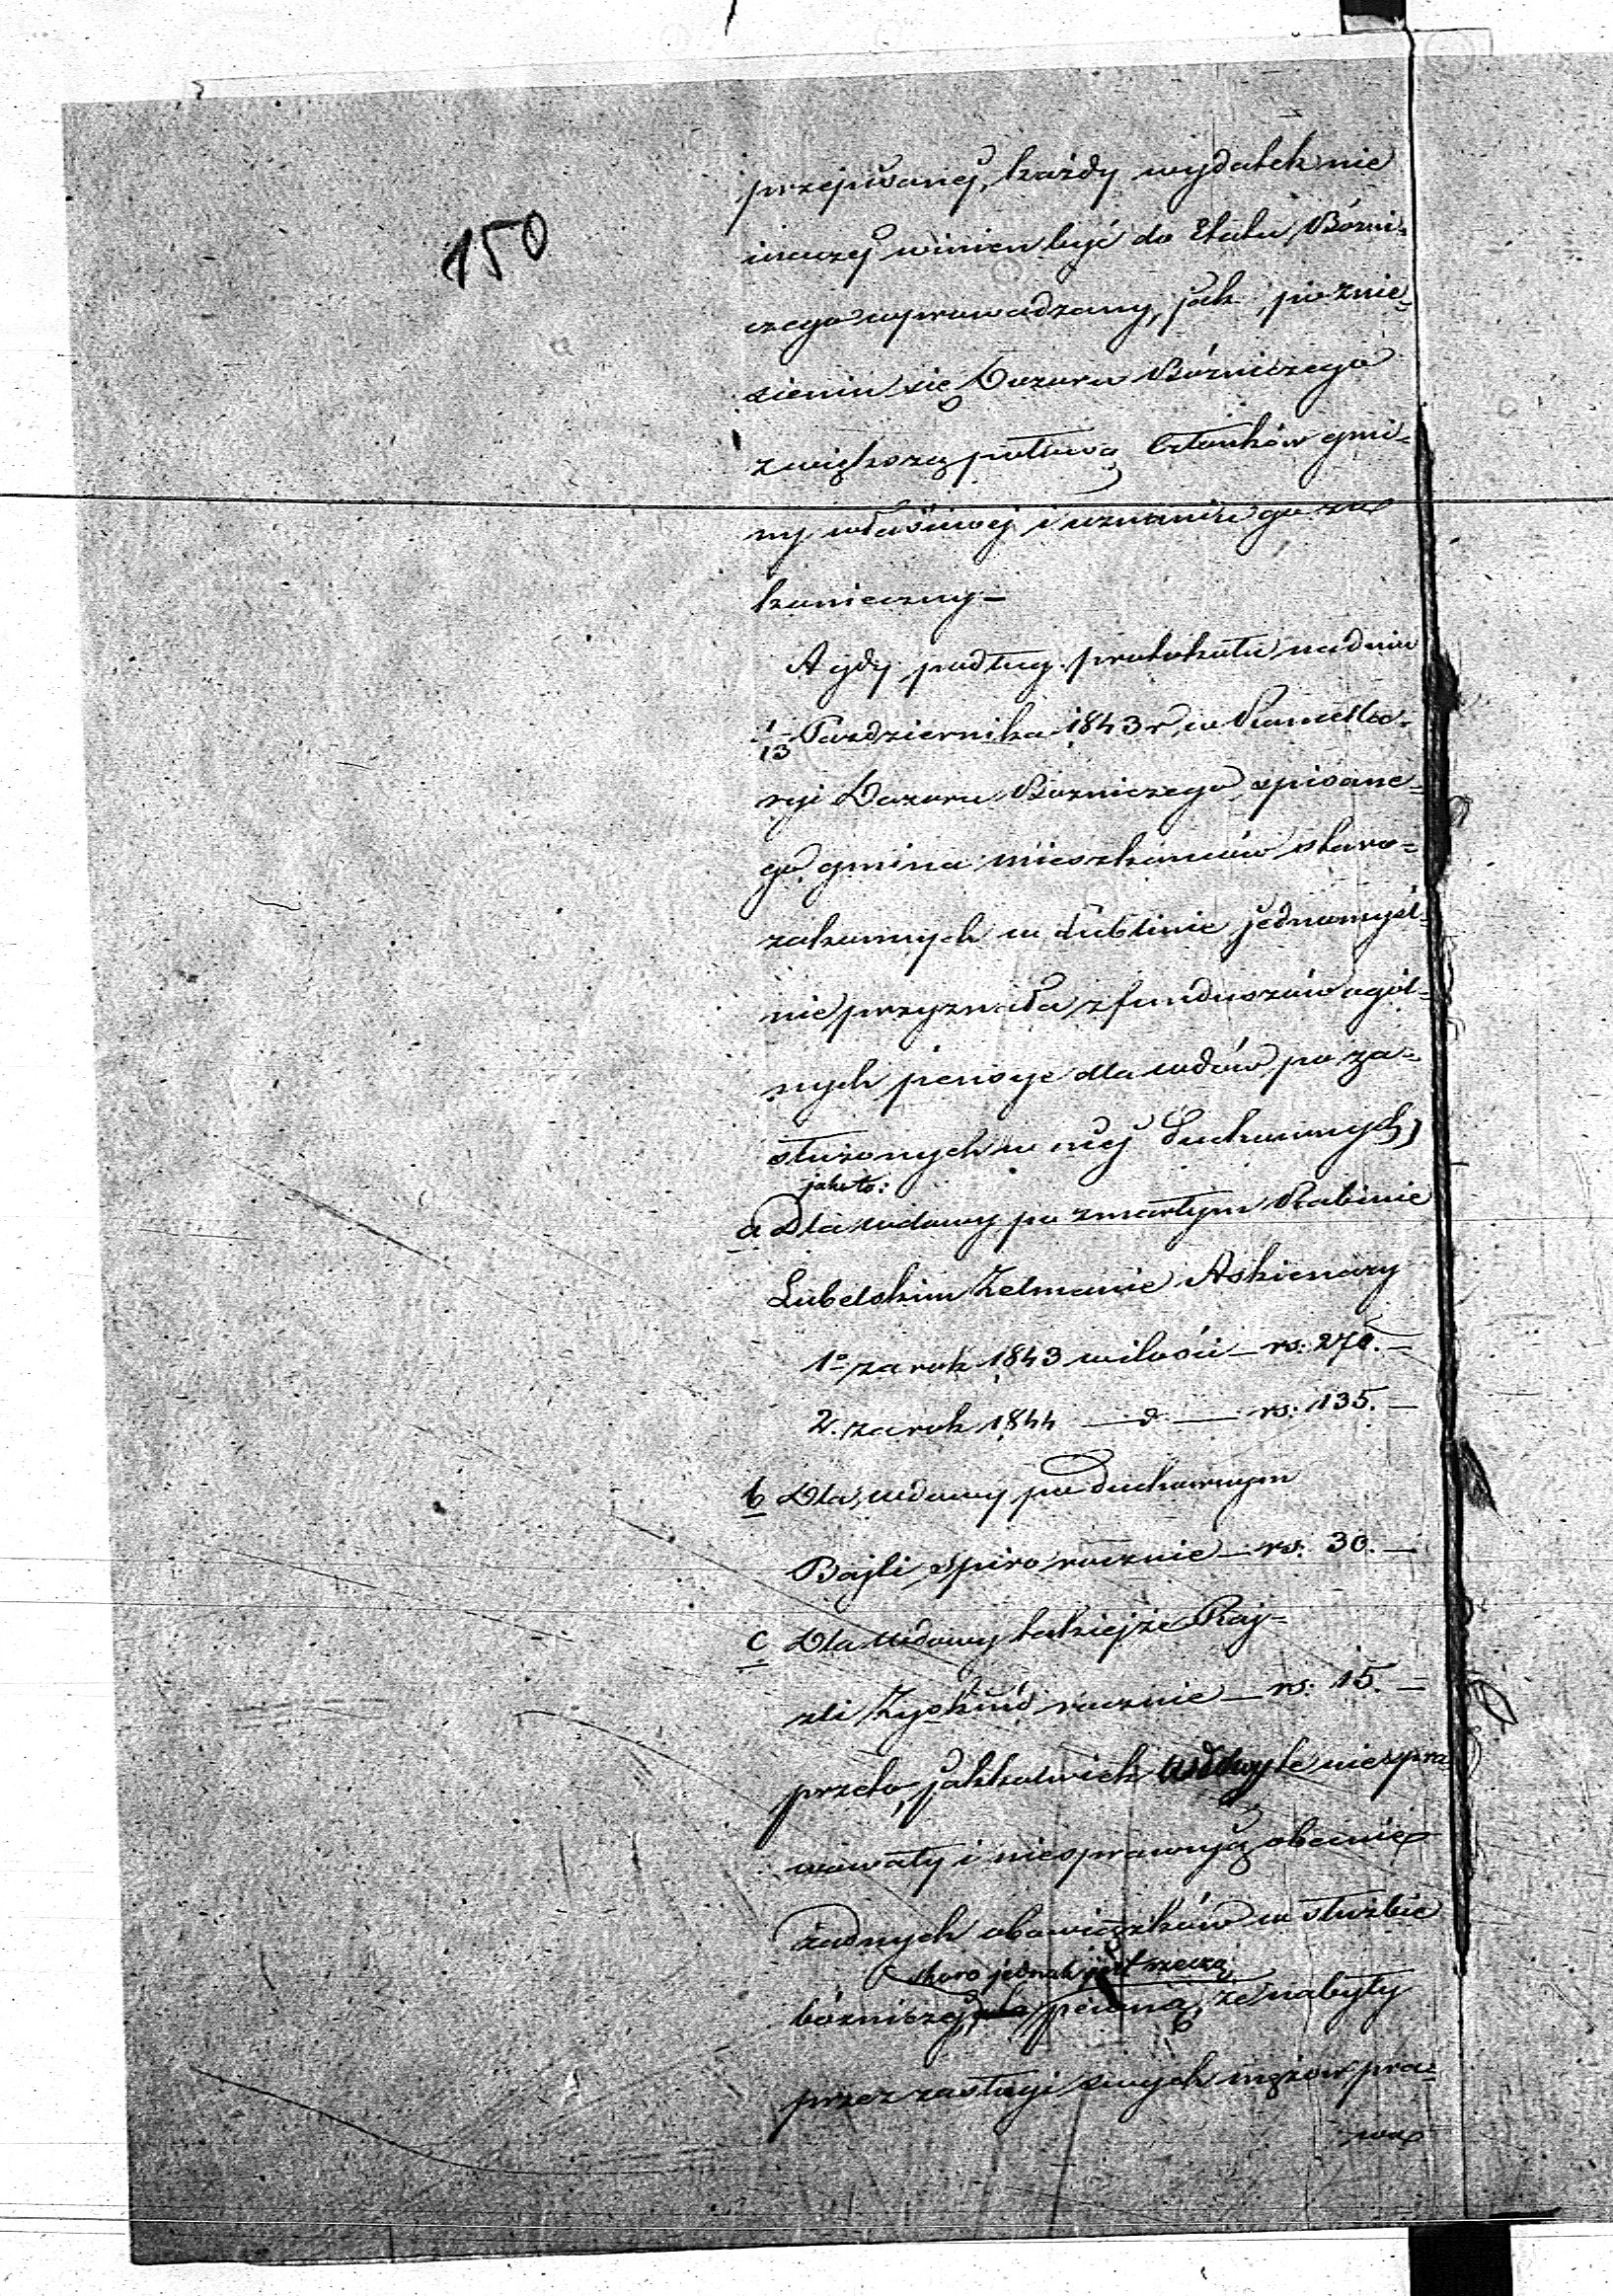 150
przepisanej, każdy wydatek nie
inaczej winien być do Etatu Bózni-
czego wprowadzany, jak po znie-
sieniu się Dozoru Bózniczego
z większą połową Członków gmi-
ny właściwej i uznaniu go za
konieczny –
A gdy podług protokołu na dniu
1/13 Października 1843 r. w Kancella-
ryi Dozoru Bozniczego spisane-
go gmina mieszkańców staro-
zakonnych w Lublinie jednomyśl-
nie przyznała z funduszów ogól-
nych pensye dla wdów po za-
służonych w niej Duchownych,
jako to:
a Dla wdowy po zmarłym Rabinie
Lubelskim Zelmanie Askienazy
1o za rok 1843 w ilości – rs: 270. –
2. za rok 1844 — d — rs: 135. –
b Dla wdowy po duchownym
Bajli Spiro rocznie – rs: 30. –
c Dla wdowy takiejże Raj-
zli Zyskind rocznie – rs: 15. –
przeto jakkolwiek wdowy te nie spra
wowały i nie sprawują obecnie
żadnych obowiązków w służbie
skoro jednak jest rzeczą
bózniczej, pewną, że nabyły
przez zasługi swych mężów pra-
wa